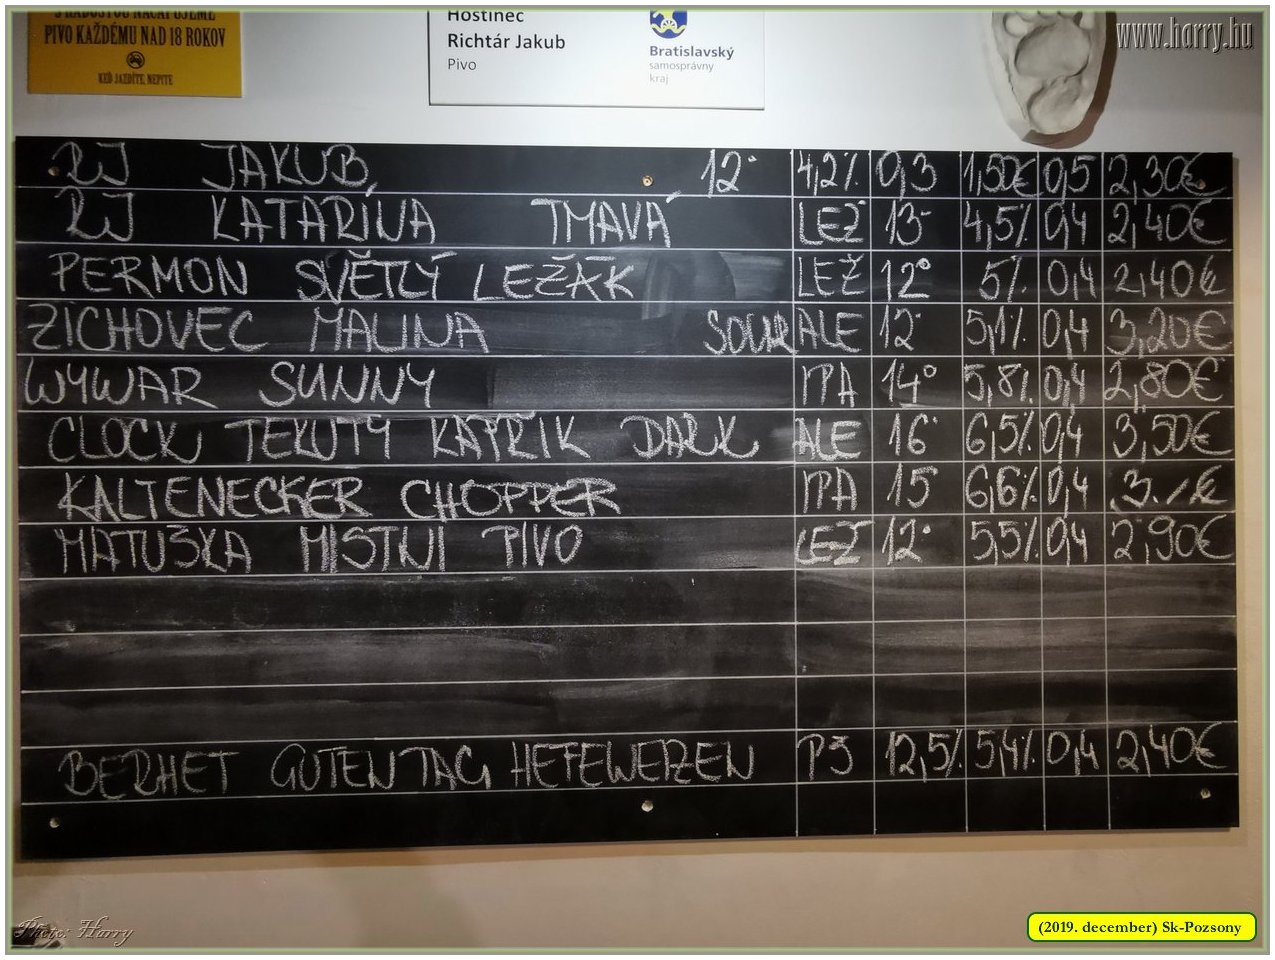 S RADOSŤOU NAČAPUJEME
PIVO KAŽDÉMU NAD 18 ROKOV
KEĎ JAZDÍTE, NEPITE
Hostinec
Richtár Jakub
Pivo
Bratislavský
samosprávny
kraj
www.harry.hu
RJ JAKUB 12° 4,2% 0,3 1,50€ 0,5 2,30€
RJ KATARÍNA TMAVÁ LEŽ 13° 4,5% 0,4 2,40€
PERMON SVĚTLÝ LEŽÁK LEŽ 12° 5% 0,4 2,40€
ZICHOVEC MALINA SOUR ALE 12° 5,1% 0,4 3,20€
WYWAR SUNNY IPA 14° 5,8% 0,4 2,80€
CLOCK TEKUTÝ KATRIK DARK ALE 16° 6,5% 0,4 3,50€
KALTENECKER CHOPPER IPA 15 6,6% 0,4 3.-/€
MATUŠKA MISTNI PIVO LEŽ 12° 5,5% 0,4 2,90€
BERHET GUTENTAG HEFEWEIZEN PŠ 12,5% 5,4% 0,4 2,40€
Photo: Harry
(2019. december) Sk-Pozsony